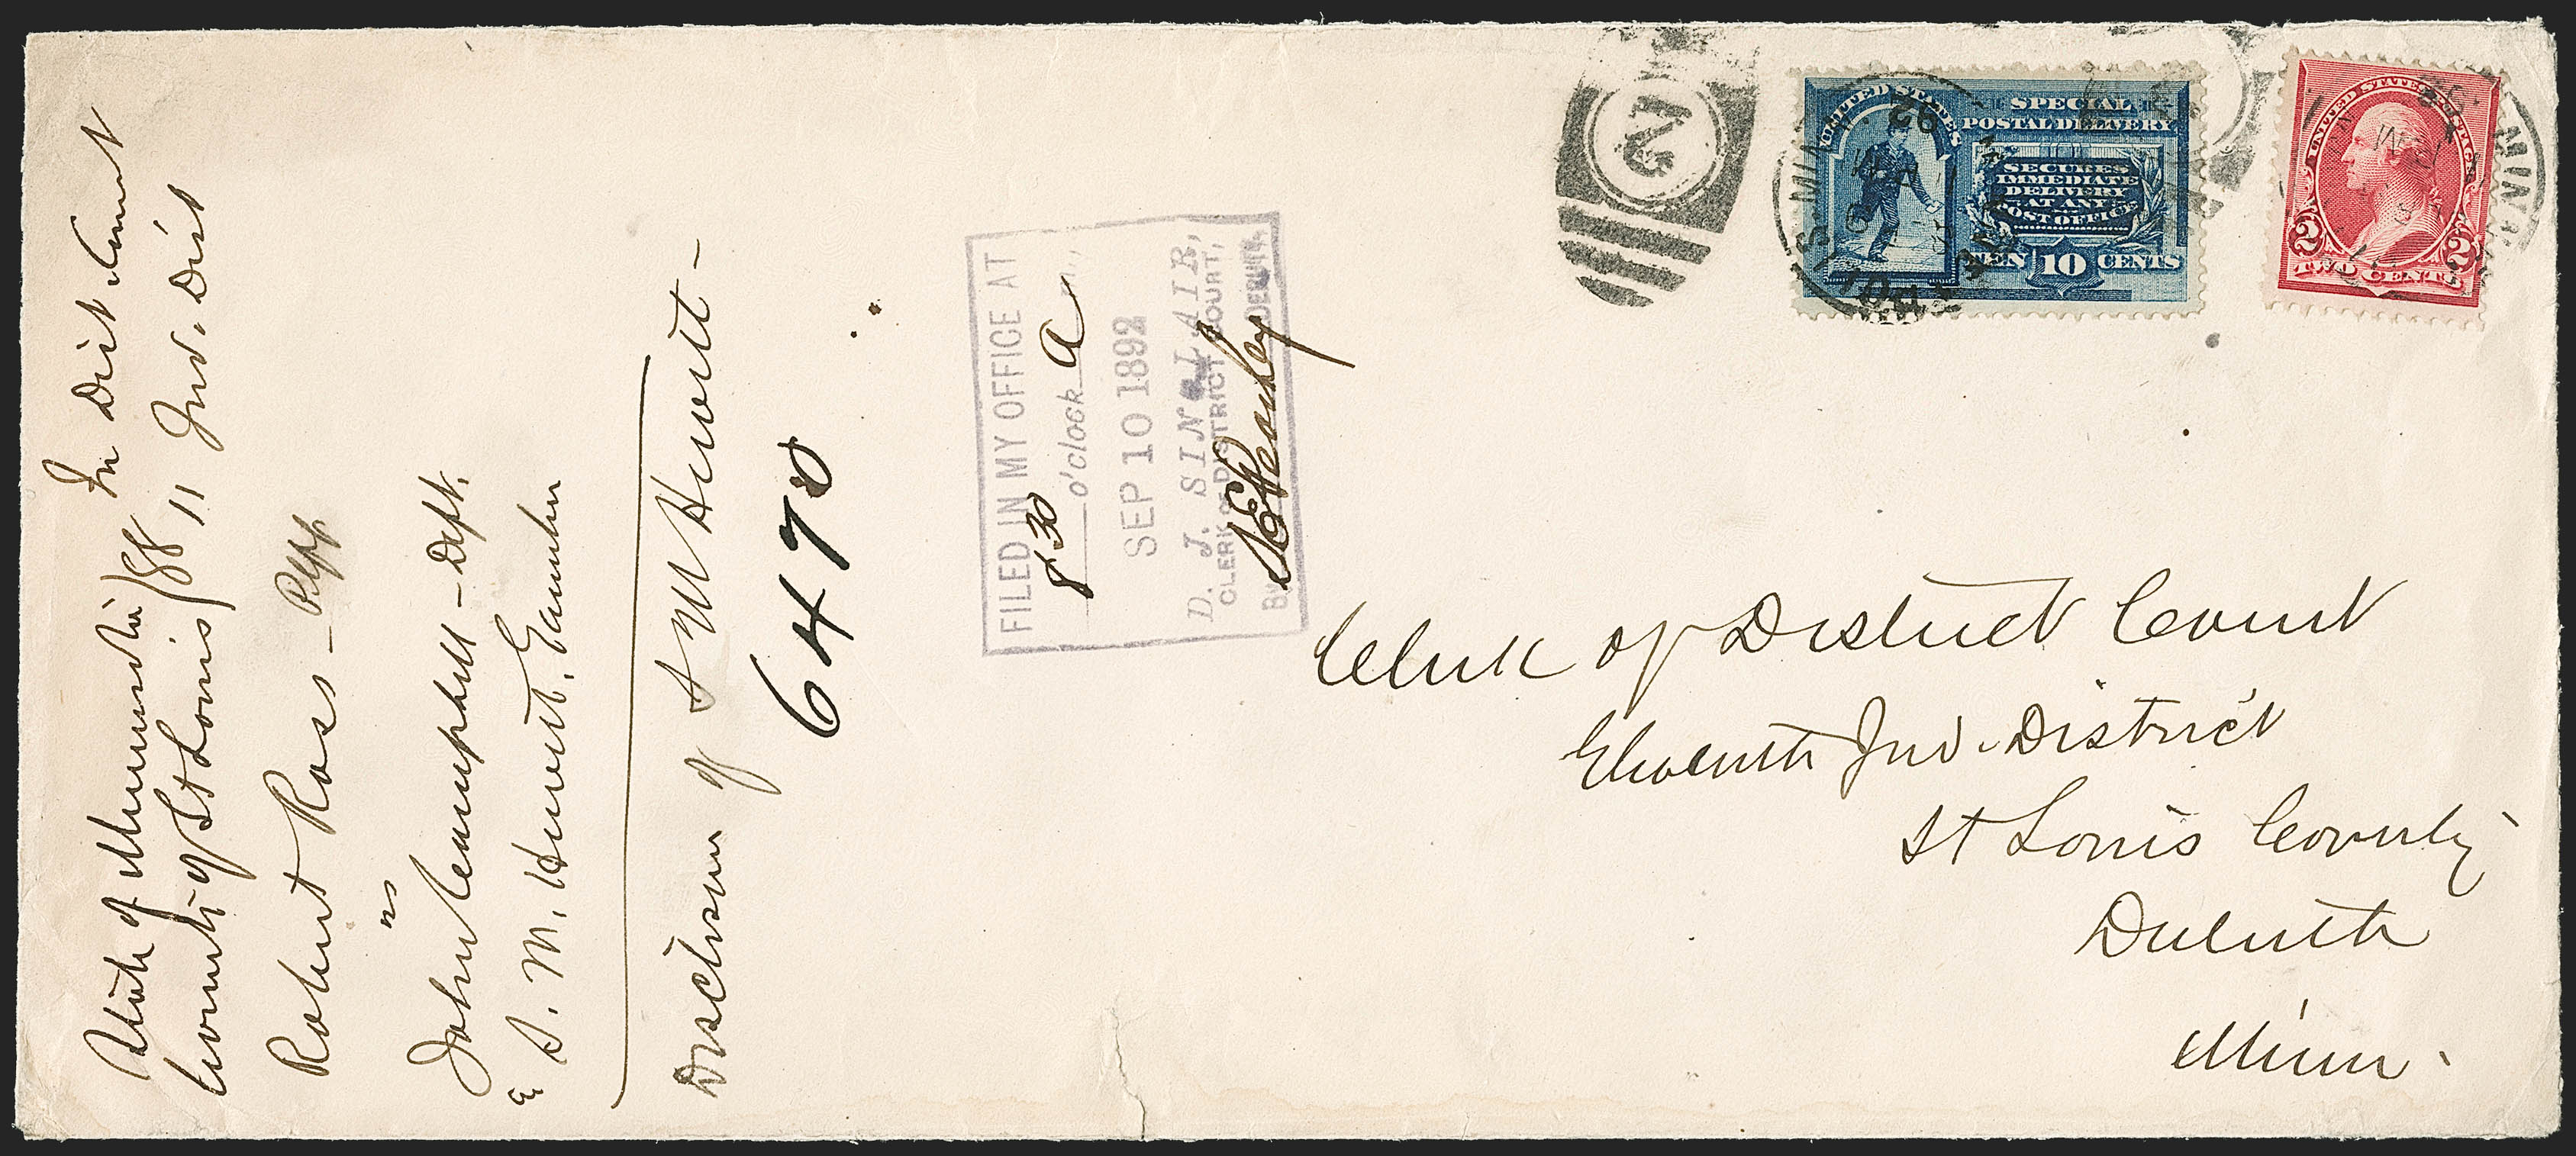 State of Minnesota } SS In Dist Court
County of St Louis } 11 Jud. Dist
Robert Ross - Plff
vs
John Campbell - Deft.
& S. M. Hewitt, Garnishee
Disclosure of S M Hewitt -
6470
FILED IN MY OFFICE AT
8 30 o'clock a m.,
SEP 10 1892
D. J. SINCLAIR,
CLERK OF DISTRICT COURT,
By DEPUTY.
2
UNITED STATES
SPECIAL
POSTAL DELIVERY
SECURES
IMMEDIATE
DELIVERY
AT ANY
POST OFFICE
TEN 10 CENTS
92
MINN.
UNITED STATES POSTAGE
2 2
TWO CENTS
MINN.
Clerk of District Court
Eleventh Jud. District
St Louis County
Duluth
Minn.